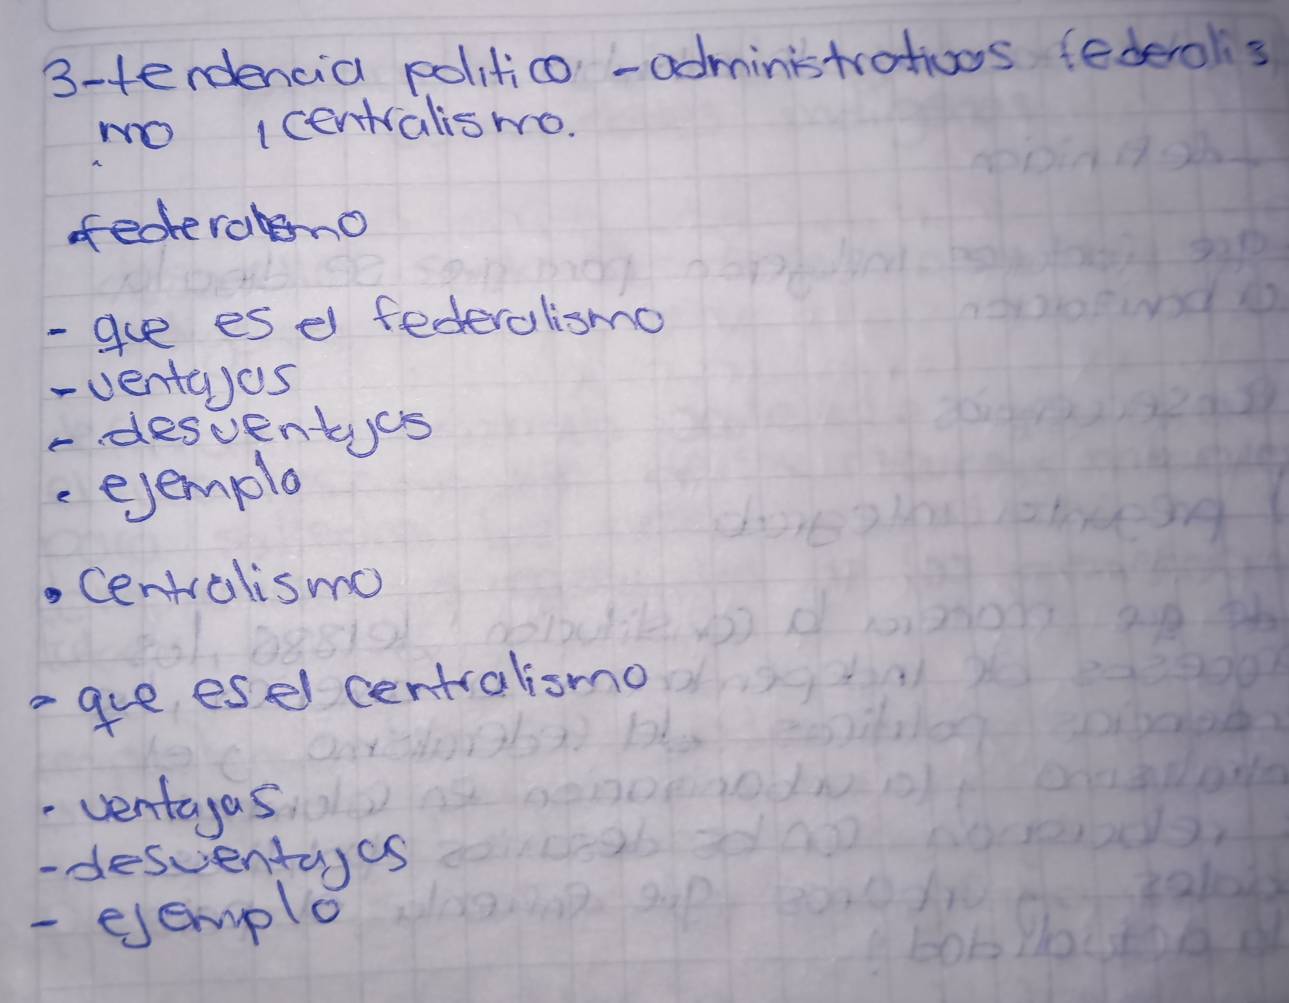 3-tendencia politico - administrativos federalis
mo , centralismo.
federalismo
- que es el federalismo
- ventajas
- desventajas
. ejemplo
• Centralismo
- que es el centralismo
. ventajas
- desventajas
- ejemplo